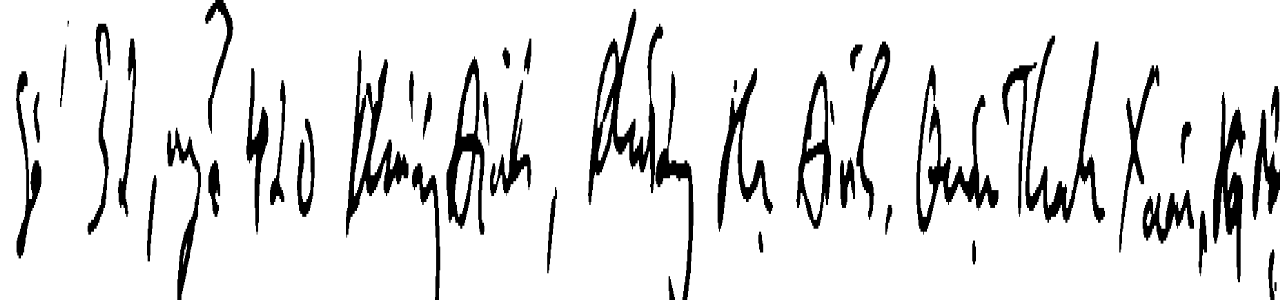 Số 32, ngõ 420 Khương Đình, Phường Hạ Đình, Quận Thanh Xuân, Hà Nội